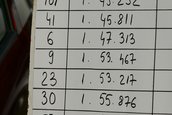 41 1. 45.811
6 1. 47.313
9 1. 53.467
23 1. 53.217
30 1. 55.876